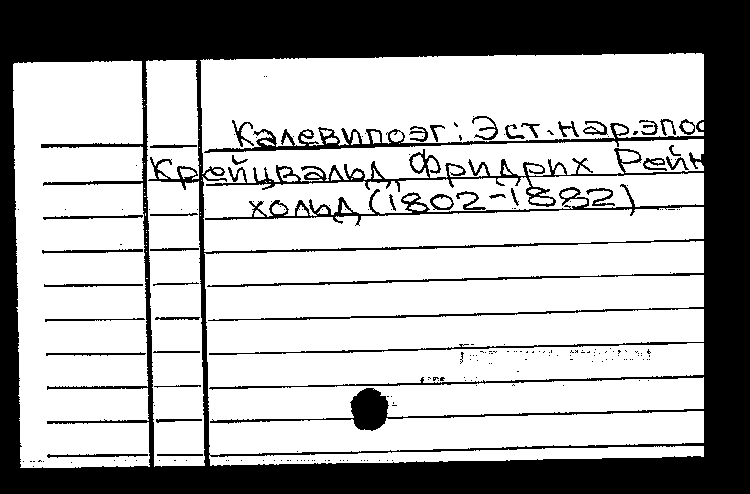 Калевипоэг: Эст. нар. эпос
Крейцвальд, Фридрих Рейн
хольд (1802-1882)